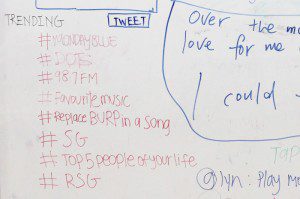 TRENDING
TWEET
#MONDAYBLUE
#DUE
#98.7FM
#Favouritemusic
#Replace BURP in a song
#SG
#TOP5peopleofyourlife
#RSG
Over the mo
love for me
I could
TAP
@lyn: Play Me